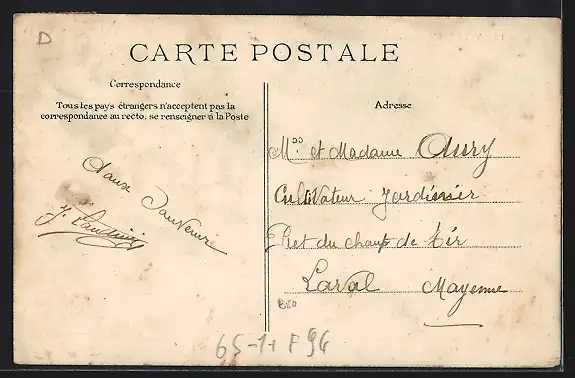 D
CARTE POSTALE
Correspondance
Tous les pays étrangers n'acceptent pas la
correspondance au recto, se renseigner à la Poste
Adresse
et Madame
Cultivateur Jardinier
du champ de tir
Laval Mayenne
65-1+ F96